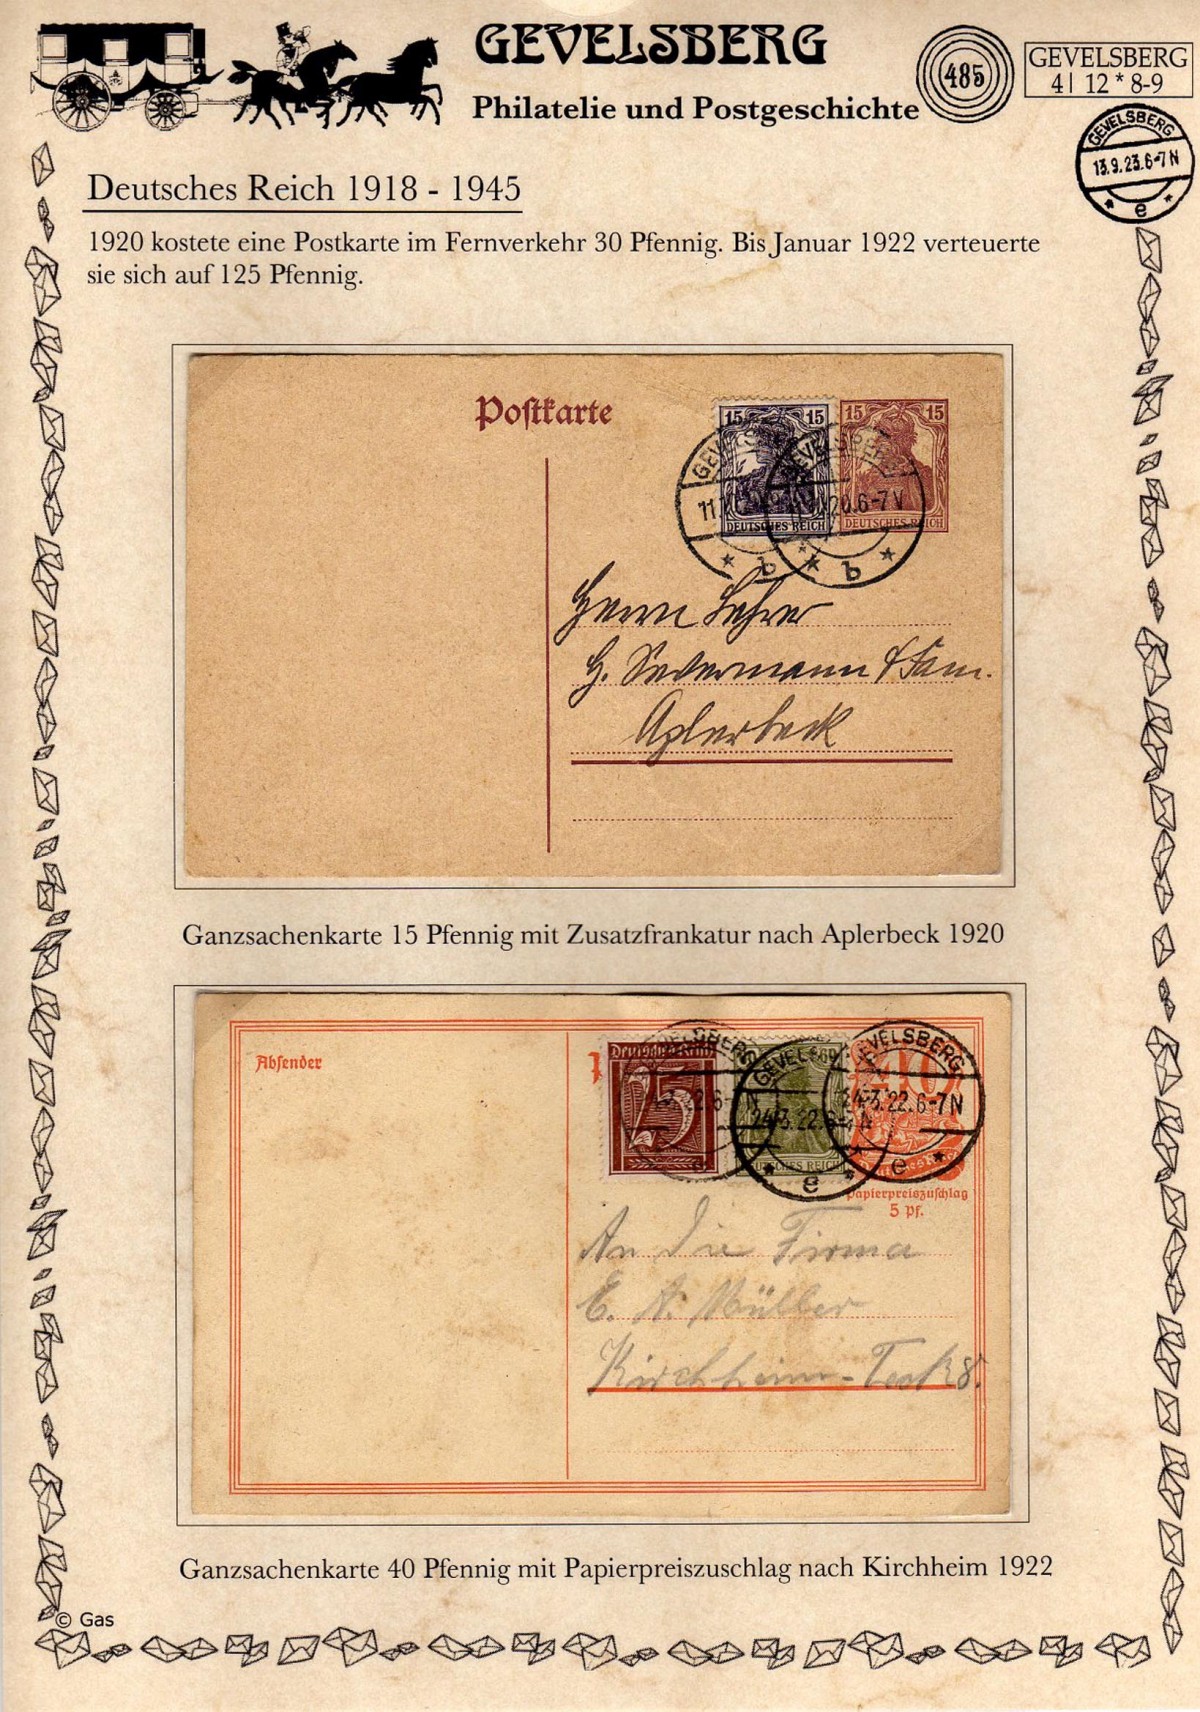 GEVELSBERG
Philatelie und Postgeschichte
485
GEVELSBERG
4| 12 * 8-9
GEVELSBERG
13.9.23.6-7 N
* e *
Deutsches Reich 1918 - 1945
1920 kostete eine Postkarte im Fernverkehr 30 Pfennig. Bis Januar 1922 verteuerte
sie sich auf 125 Pfennig.
Postkarte
15 15
15 15
GEVELSBERG
20.6-7 V
DEUTSCHES REICH
DEUTSCHES REICH
* b * b *
Herrn Lehrer
H. & Fam.
Aplerbeck
Ganzsachenkarte 15 Pfennig mit Zusatzfrankatur nach Aplerbeck 1920
Absender
Deutsches Reich
25
60
40
GEVELSBERG
GEVELSBERG
24.3.22.6-7 N
24.3.22.6-7 N
DEUTSCHES REICH
* e * e *
Papierpreiszuschlag
5 Pf.
An die Firma
E. A. Müller
Kirchheim-Teck
Ganzsachenkarte 40 Pfennig mit Papierpreiszuschlag nach Kirchheim 1922
© Gas